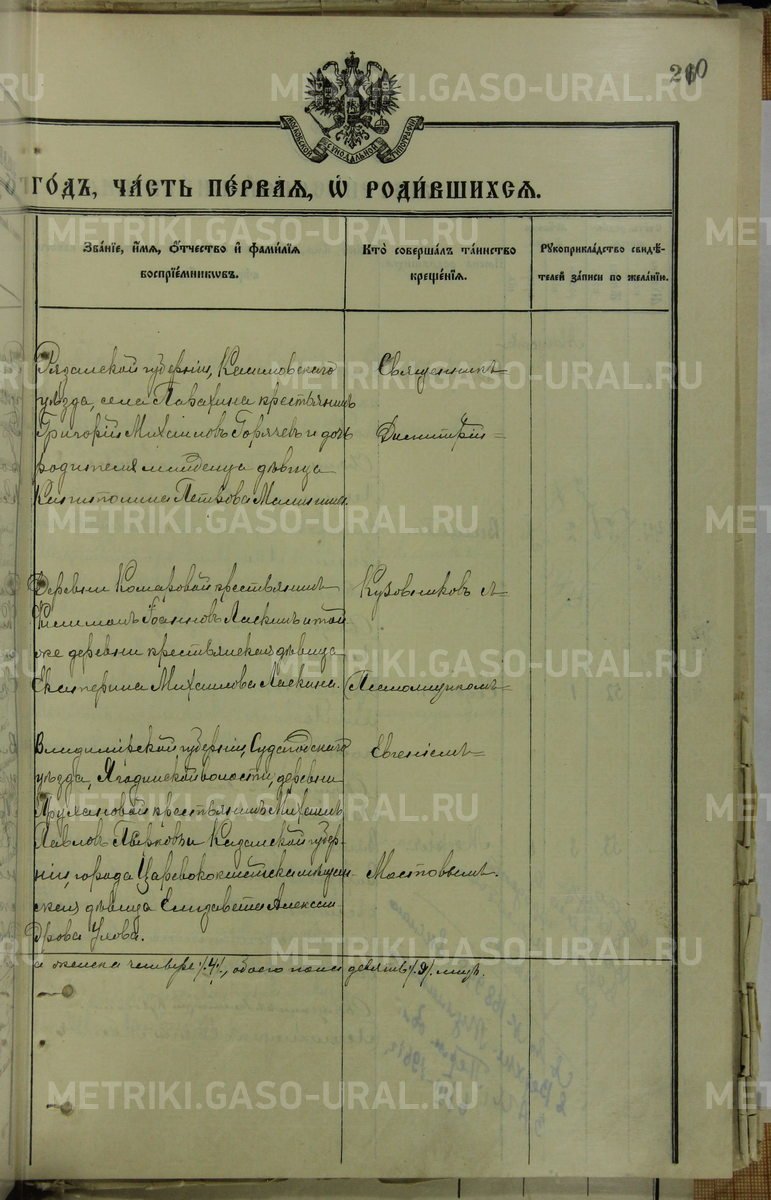 210
МОСКОВСКОЙ СѴНОДАЛЬНОЙ ТИПОГРАФІИ
ГО́ДЪ, ЧА́СТЬ ПЕ́РВАЯ, Ѡ҆ РОДИ́ВШИХСЯ.
Зва́нїе, и҆́мя, ѻ҆́тчество и҆ фами́лїя
воспрїе́мникѡвъ.
Кто̀ соверша́лъ та́инство
креще́нїя.
Рꙋкоприкла́дство свидѣ́-
телей за́писи по жела́нїю.
Рязанской губерніи, Касимовскаго
уѣзда, села Парахина крестьянинъ
Григорій Михаиловъ Горячевъ и дочь
родителя младенца дѣвица
Капитолина Петрова
Священникъ
Димитрій
Деревни Комаровой крестьянинъ
Филимонъ Іоанновъ Ласкинъ и той
же деревни крестьянская дѣвица
Екатерина Михаилова Ласкина.
Кузовниковъ съ
Псаломщикомъ
Владимірской губерніи, Судогодского
уѣзда, Ягодинской волости, деревни
крестьянинъ Михаилъ
Павловъ и Казанской губер-
ніи, города Царевококшайска мѣщан-
ская дѣвица Елизавета Алексан-
дрова
Евгеніемъ
Мостовымъ.
а женска четыре /.4/., обоего пола девять /.9/. лицъ.
METRIKI.GASO-URAL.RU